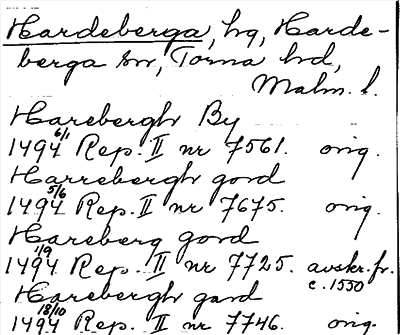 Hardeberga, hg, Harde-
berga sn, Torna hd,
Malm. l.
Harebergh By
1494 6/1 Rep. II nr 7561. orig.
Harrebergh gord
1494 5/6 Rep. II nr 7675. orig.
Hareberg gord
1494 1/9 Rep. II nr 7725. avskr. fr.
c. 1550
Harebergh gard
1494 18/10 Rep. II nr 7746. orig.